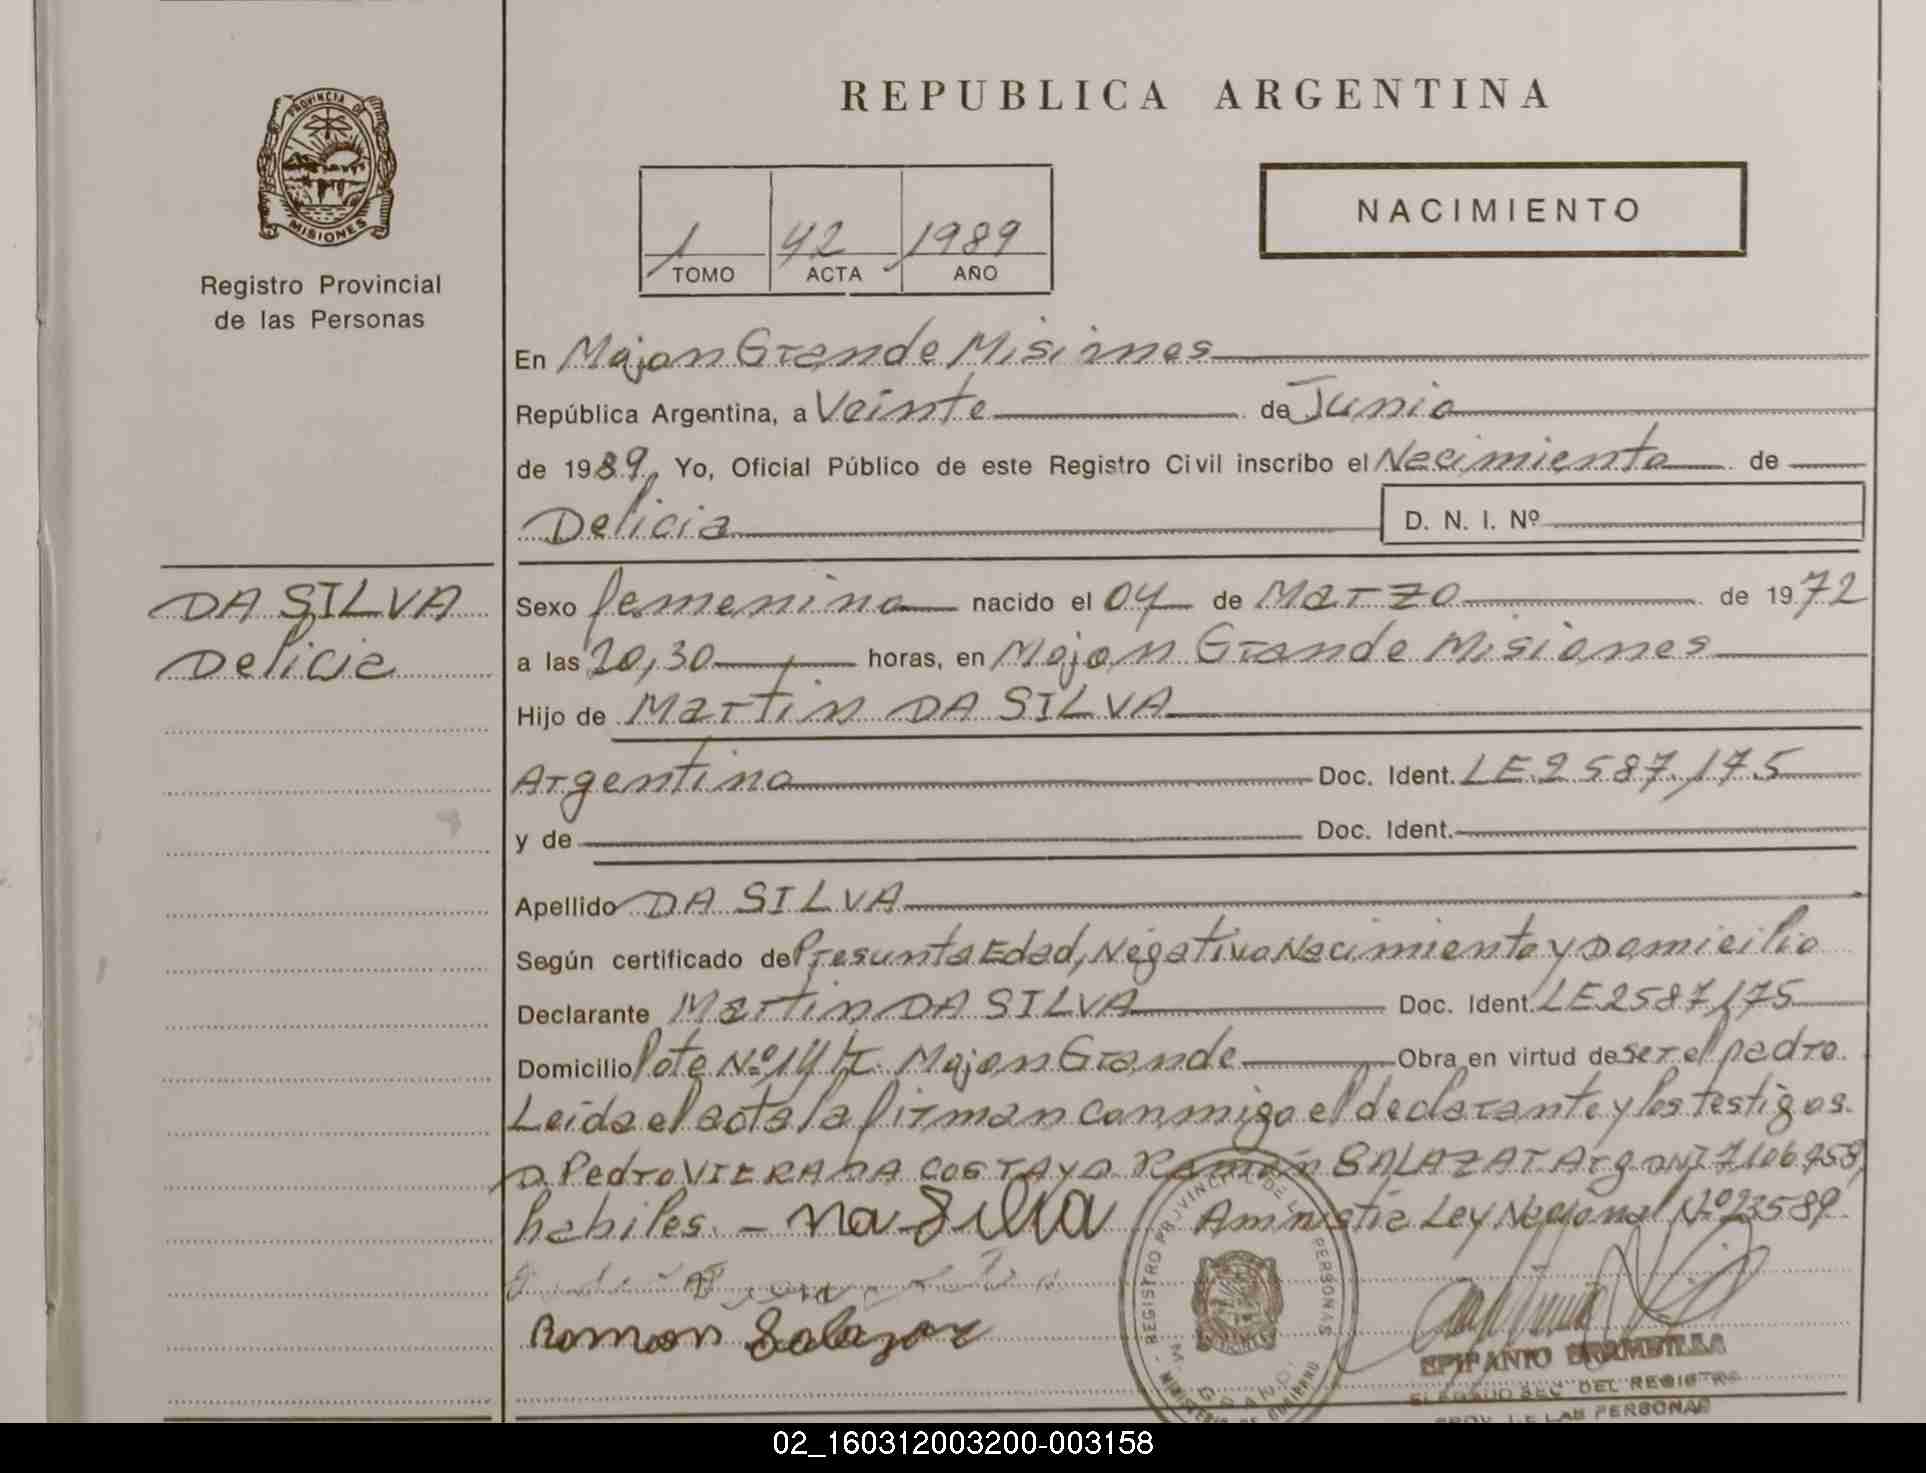 REPUBLICA ARGENTINA
PROVINCIA DE
MISIONES
Registro Provincial
de las Personas
1 42 1989
TOMO ACTA AÑO
NACIMIENTO
En Mojon Grande Misiones
República Argentina, a Veinte de Junio
de 1989, Yo, Oficial Público de este Registro Civil inscribo el Nacimiento de
Delicia D. N. I. Nº
DA SILVA
Delicia
Sexo femenino nacido el 04 de Marzo de 1972
a las 20,30 horas, en Mojon Grande Misiones
Hijo de Martin DA SILVA
Argentino Doc. Ident. LE2587175
y de Doc. Ident.
Apellido DA SILVA
Según certificado de Presunta Edad, Negativo Nacimiento y Domicilio
Declarante Martin DA SILVA Doc. Ident. LE2587175
Domicilio lote Nº 14 Mojon Grande Obra en virtud de ser el padre.
Leida el acta la firman conmigo el declarante y los testigos.
D. Pedro VIERA DA COSTA y D. Ramón SALAZAR Arg DNI 7106958
habiles. - Da Silva Amnistia Ley Nacional Nº 23589
Ramon Salazar
REGISTRO PROVINCIAL DE LAS PERSONAS
MINISTERIO DE GOBIERNO
EPIFANIO BRAMBILLA
DEL REGISTRO
PROV. DE LAS PERSONAS
02_160312003200-003158